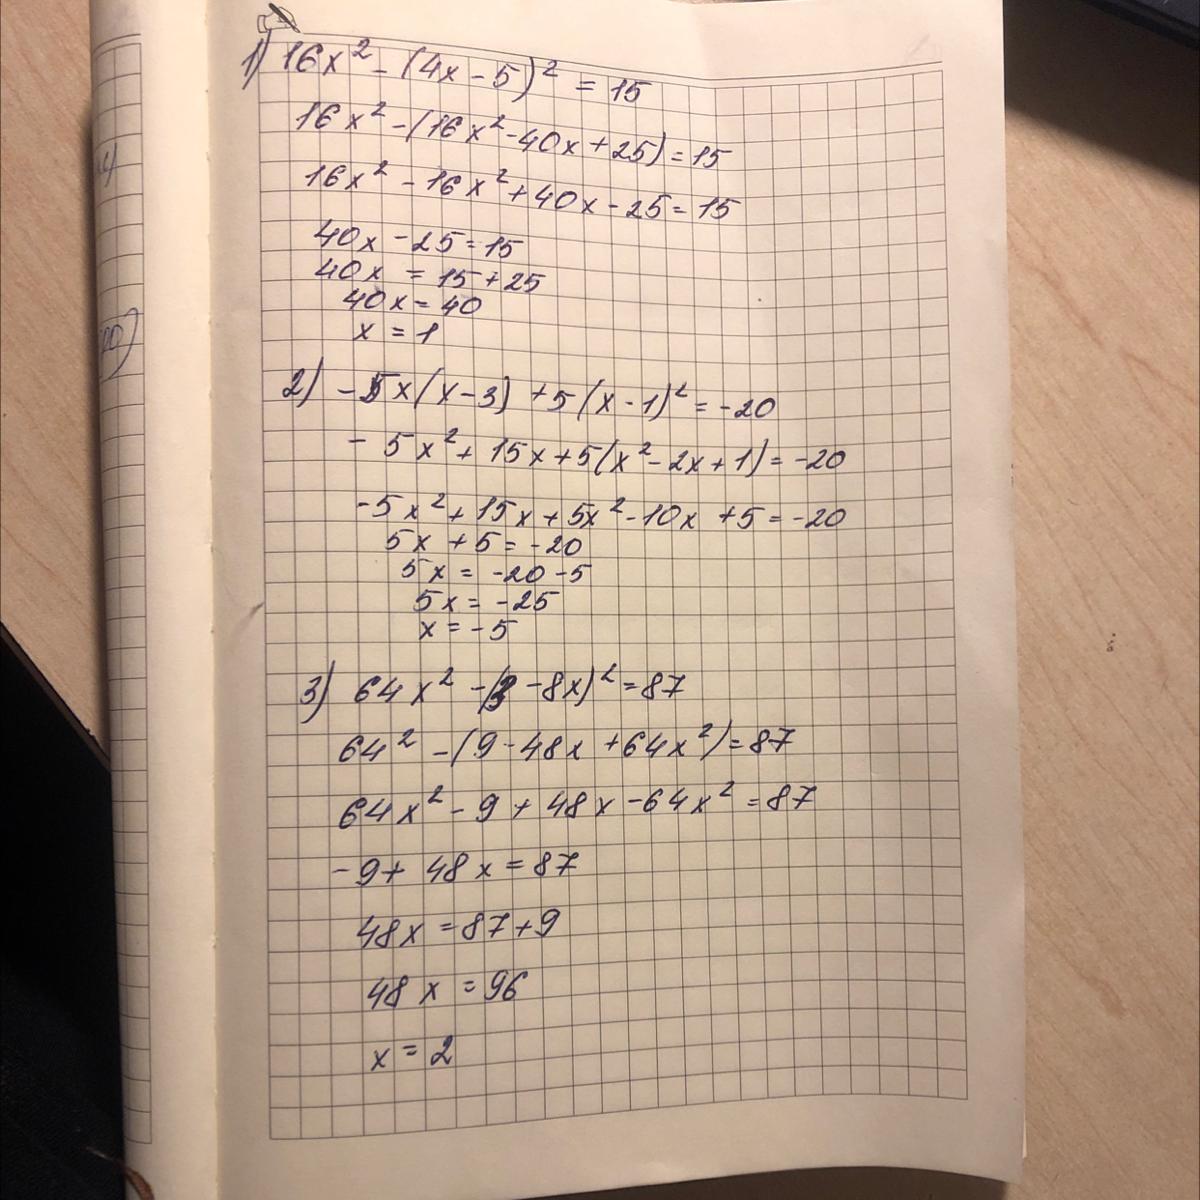 1) 16x² - (4x - 5)² = 15
16x² - (16x² - 40x + 25) = 15
16x² - 16x² + 40x - 25 = 15
40x - 25 = 15
40x = 15 + 25
40x = 40
x = 1
2) - 5x (x - 3) + 5 (x - 1)² = -20
- 5x² + 15x + 5(x² - 2x + 1) = -20
-5x² + 15x + 5x² - 10x + 5 = -20
5x + 5 = -20
5x = -20 - 5
5x = -25
x = -5
3) 64x² - (3 - 8x)² = 87
64² - (9 - 48x + 64x²) = 87
64x² - 9 + 48x - 64x² = 87
-9 + 48x = 87
48x = 87 + 9
48x = 96
x = 2